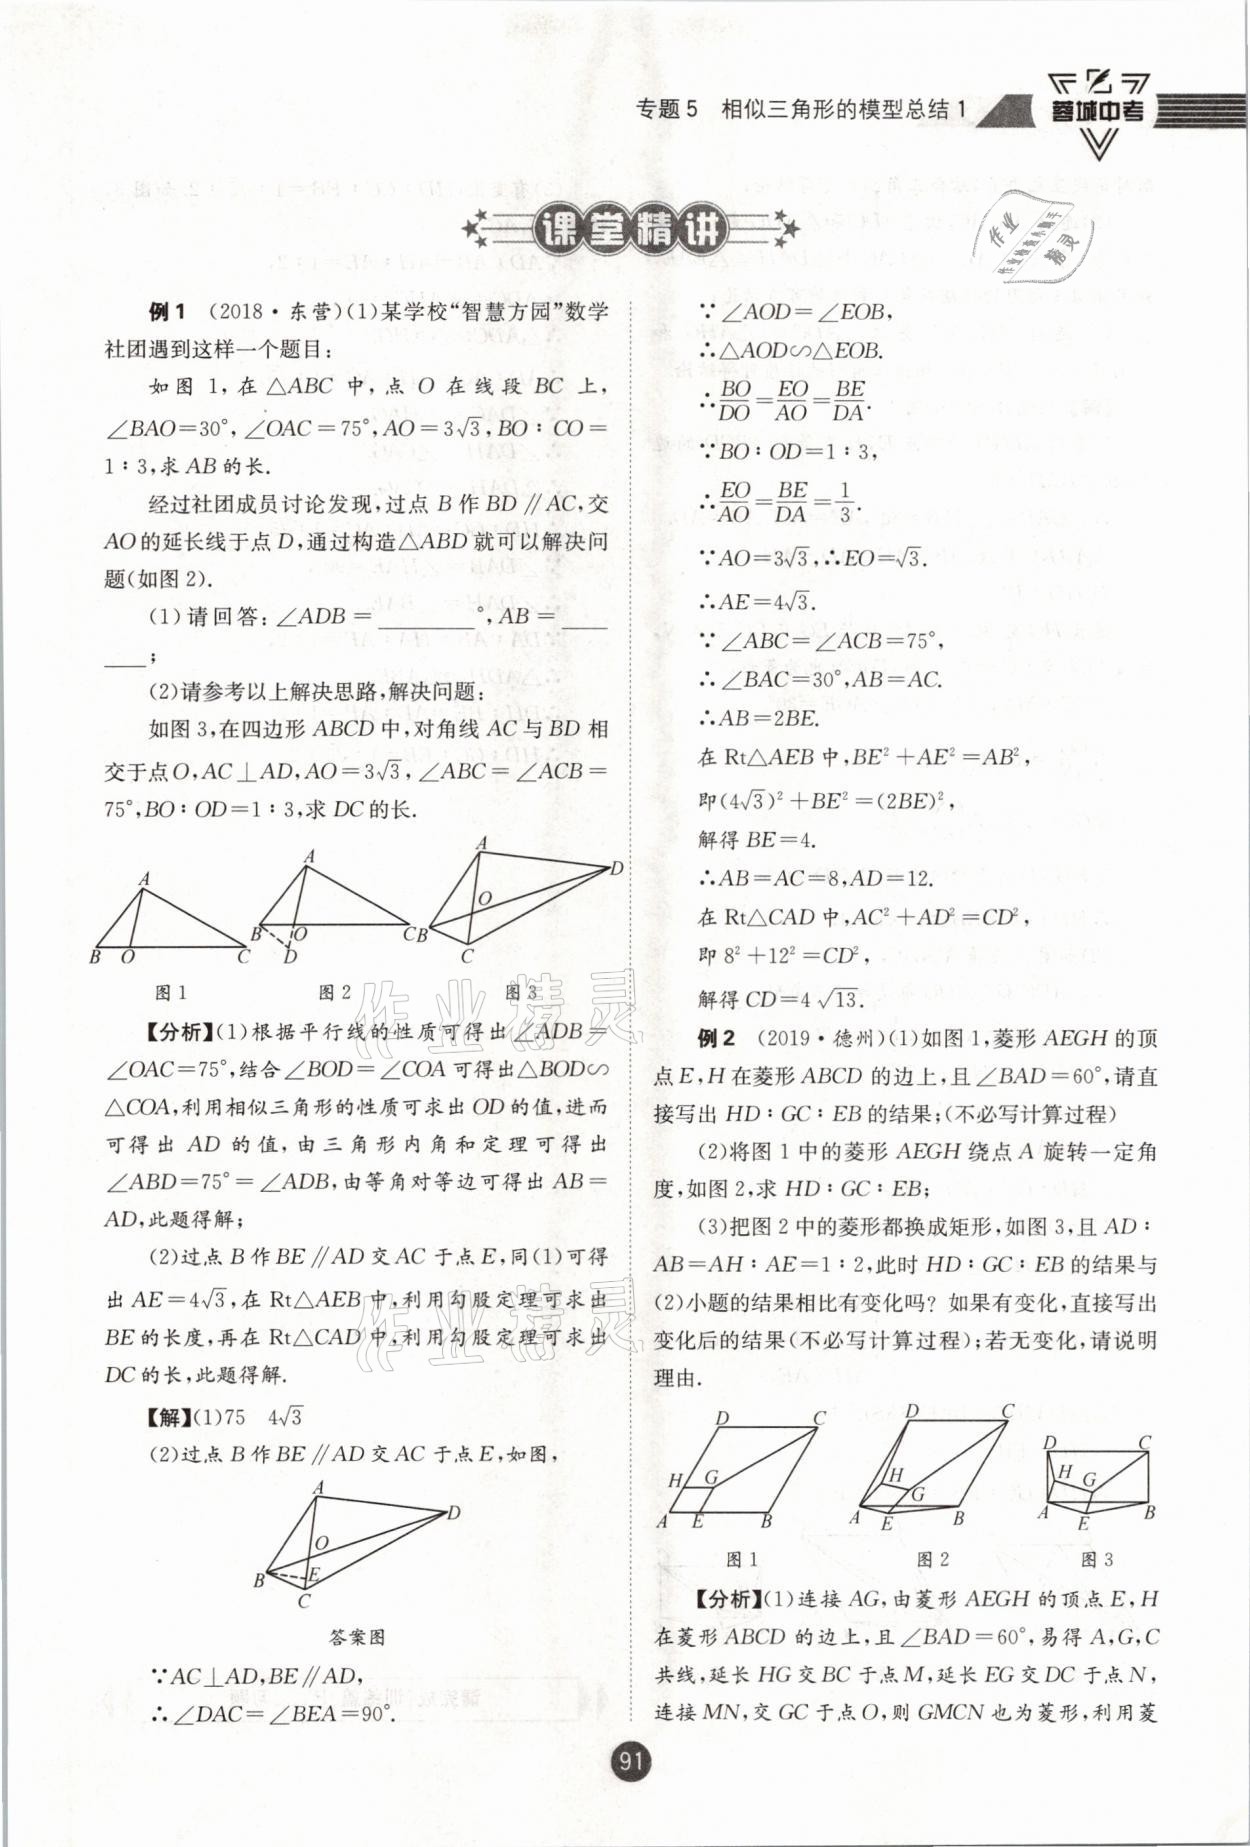 专题5 相似三角形的模型总结1
蓉城中考
课堂精讲
例1 (2018·东营)(1)某学校“智慧方园”数学
社团遇到这样一个题目:
如图 1,在△ABC 中,点 O 在线段 BC 上,
∠BAO=30°,∠OAC=75°,AO=3√3,BO∶CO=
1∶3,求 AB 的长.
经过社团成员讨论发现,过点 B 作 BD∥AC,交
AO的延长线于点 D,通过构造△ABD 就可以解决问
题(如图 2).
(1)请回答:∠ADB=________°,AB=____
____;
(2)请参考以上解决思路,解决问题:
如图 3,在四边形 ABCD 中,对角线 AC 与 BD 相
交于点O,AC⊥AD,AO=3√3,∠ABC=∠ACB=
75°,BO∶OD=1∶3,求 DC 的长.
A
B O C
图 1
A
B O C
D
图 2
A
D
O
B
C
图 3
【分析】(1)根据平行线的性质可得出∠ADB=
∠OAC=75°,结合∠BOD=∠COA 可得出△BOD∽
△COA,利用相似三角形的性质可求出 OD 的值,进而
可得出 AD 的值,由三角形内角和定理可得出
∠ABD=75°=∠ADB,由等角对等边可得出 AB=
AD,此题得解;
(2)过点 B 作 BE∥AD 交 AC 于点 E,同(1)可得
出 AE=4√3,在 Rt△AEB 中,利用勾股定理可求出
BE 的长度,再在 Rt△CAD 中,利用勾股定理可求出
DC 的长,此题得解.
【解】(1)75 4√3
(2)过点 B 作 BE∥AD 交 AC 于点 E,如图,
A
D
O
B E
C
答案图
∵AC⊥AD,BE∥AD,
∴∠DAC=∠BEA=90°.
∵∠AOD=∠EOB,
∴△AOD∽△EOB.
∴BO/DO=EO/AO=BE/DA.
∵BO∶OD=1∶3,
∴EO/AO=BE/DA=1/3.
∵AO=3√3,∴EO=√3.
∴AE=4√3.
∵∠ABC=∠ACB=75°,
∴∠BAC=30°,AB=AC.
∴AB=2BE.
在 Rt△AEB 中,BE²+AE²=AB²,
即(4√3)²+BE²=(2BE)²,
解得 BE=4.
∴AB=AC=8,AD=12.
在 Rt△CAD 中,AC²+AD²=CD²,
即 8²+12²=CD²,
解得 CD=4√13.
例2 (2019·德州)(1)如图 1,菱形 AEGH 的顶
点 E,H 在菱形 ABCD 的边上,且∠BAD=60°,请直
接写出 HD∶GC∶EB 的结果;(不必写计算过程)
(2)将图 1 中的菱形 AEGH 绕点 A 旋转一定角
度,如图 2,求 HD∶GC∶EB;
(3)把图 2 中的菱形都换成矩形,如图 3,且 AD∶
AB=AH∶AE=1∶2,此时 HD∶GC∶EB 的结果与
(2)小题的结果相比有变化吗?如果有变化,直接写出
变化后的结果(不必写计算过程);若无变化,请说明
理由.
D C
H G
A E B
图 1
D C
H
G
A E B
图 2
D C
H G
A E B
图 3
【分析】(1)连接 AG,由菱形 AEGH 的顶点 E,H
在菱形 ABCD 的边上,且∠BAD=60°,易得 A,G,C
共线,延长 HG 交 BC 于点 M,延长 EG 交 DC 于点 N,
连接 MN,交 GC 于点 O,则 GMCN 也为菱形,利用菱
91
作业精灵
作业精灵